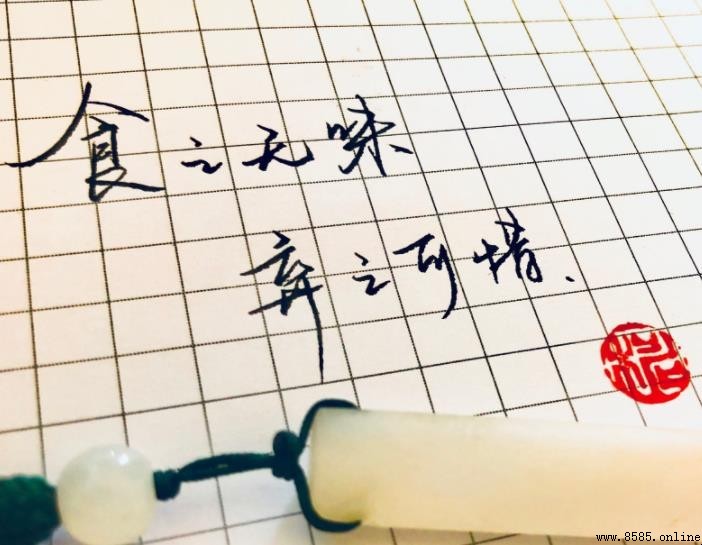 食之无味
弃之可惜、
www.8585.online